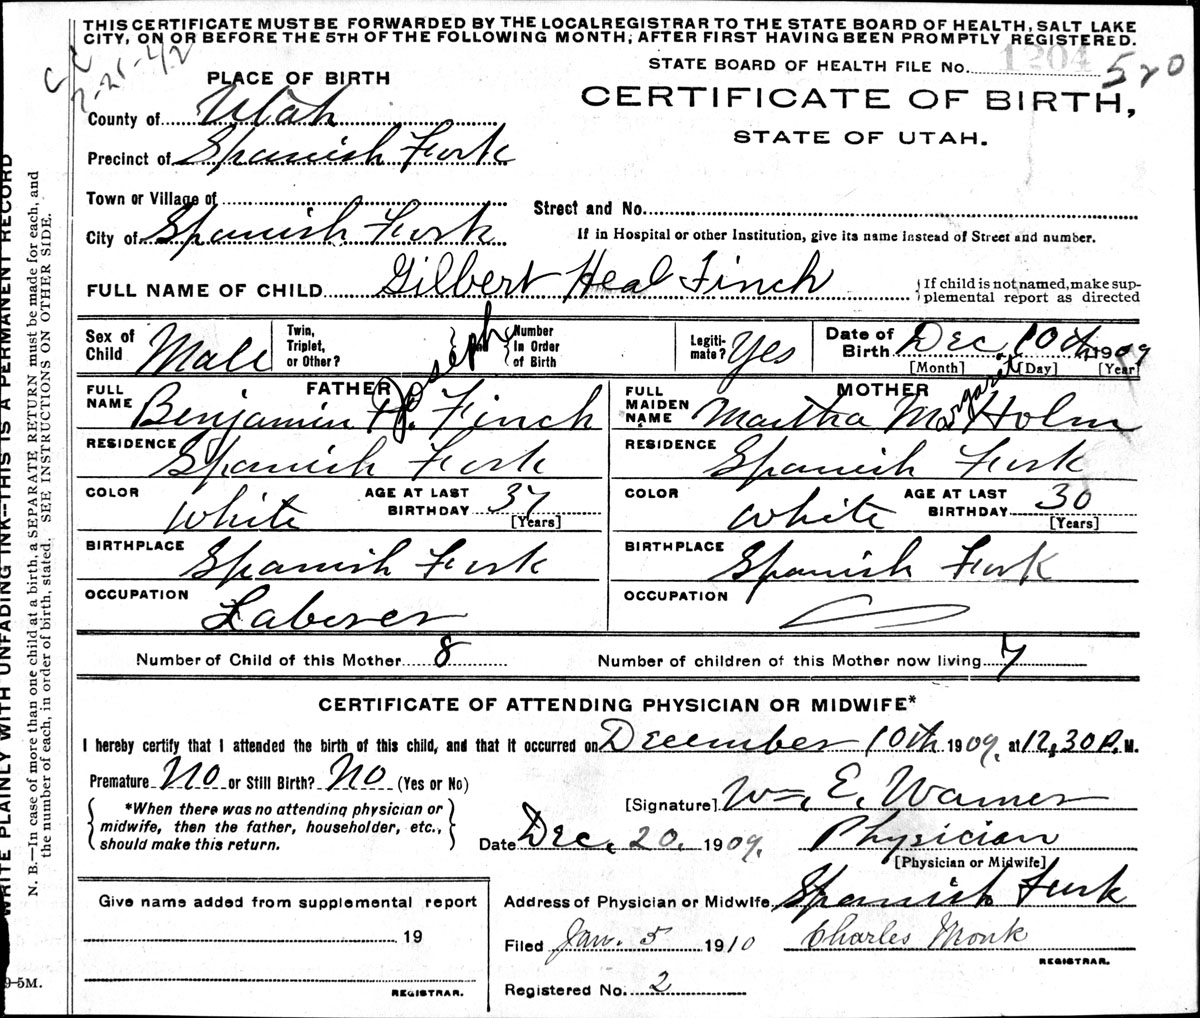 THIS CERTIFICATE MUST BE FORWARDED BY THE LOCAL REGISTRAR TO THE STATE BOARD OF HEALTH, SALT LAKE
CITY, ON OR BEFORE THE 5TH OF THE FOLLOWING MONTH, AFTER FIRST HAVING BEEN PROMPTLY REGISTERED.
STATE BOARD OF HEALTH FILE No. 1204 520
CC
2-21-42
PLACE OF BIRTH
CERTIFICATE OF BIRTH,
STATE OF UTAH.
County of Utah
Precinct of Spanish Fork
Town or Village of
Street and No.
City of Spanish Fork
If in Hospital or other Institution, give its name instead of Street and number.
FULL NAME OF CHILD Gilbert Heal Finch
If child is not named, make sup-
plemental report as directed
Sex of Child Male
Twin, Triplet, or Other?
and
Number In Order of Birth
Legiti-mate? Yes
Date of Birth Dec. 10th, 1909
[Month] [Day] [Year]
FATHER
FULL NAME Benjamin Joseph Finch
RESIDENCE Spanish Fork
COLOR White AGE AT LAST BIRTHDAY 37
[Years]
BIRTHPLACE Spanish Fork
OCCUPATION Laborer
MOTHER
FULL MAIDEN NAME Martha Margaret Holm
RESIDENCE Spanish Fork
COLOR White AGE AT LAST BIRTHDAY 30
[Years]
BIRTHPLACE Spanish Fork
OCCUPATION
Number of Child of this Mother 8 Number of children of this Mother now living 7
CERTIFICATE OF ATTENDING PHYSICIAN OR MIDWIFE*
I hereby certify that I attended the birth of this child, and that it occurred on December 10th 1909, at 12,30 P. M.
Premature No or Still Birth? No (Yes or No)
*When there was no attending physician or
midwife, then the father, householder, etc.,
should make this return.
[Signature] Wm. E. Warner
Date Dec. 20. 1909. Physician
[Physician or Midwife]
Give name added from supplemental report
19
REGISTRAR.
Address of Physician or Midwife Spanish Fork
Filed Jan. 5 1910 Charles Monk
REGISTRAR.
Registered No. 2
WRITE PLAINLY WITH UNFADING INK--THIS IS A PERMANENT RECORD
N. B.—In case of more than one child at a birth, a SEPARATE RETURN must be made for each, and
the number of each, in order of birth, stated. SEE INSTRUCTIONS ON OTHER SIDE.
9-5M.